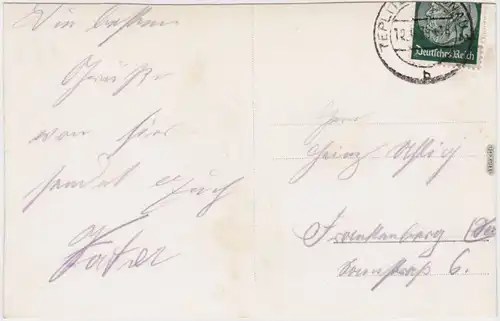 Die besten
Grüße
von hier
sendet Euch
Vater
TEPLITZ
12.
Deutsches Reich
b
Herr
Heinz
Frankenberg (Sa
6.